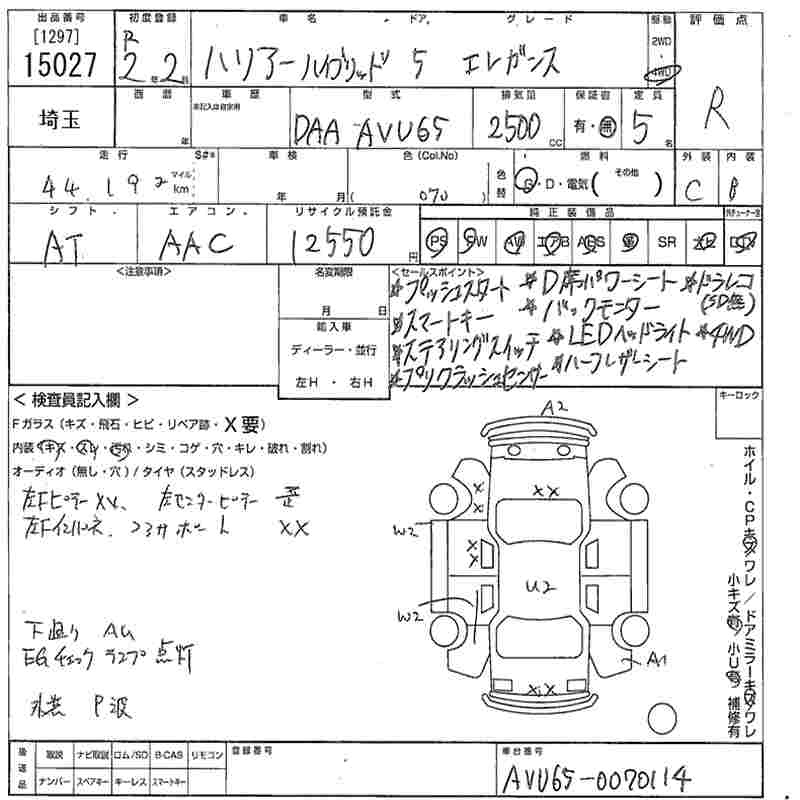 出品番号 初度登録 車名 ドア グレード 駆動 評価点
[1297] R 2WD
15027 2年2月 ハリアーハイブリッド 5 エレガンス 4WD R
埼玉 西暦 年 車歴 未記入は自家用 型式 排気量 保証書 定員
DAA-AVU65 2500 CC 有・無 5名
走行 S# 車検 色(Col.No) 色替 燃料 外装 内装
44,192 マイル km 年 月 (070) G・D・電気( その他 ) C B
シフト エアコン リサイクル預託金 純正装備品
AT AAC 12550円 PS PW AW エアB ABS 革 SR ナビ DTV
<注意事項> 名変期限 <セールスポイント>
月 日
輸入車
ディーラー・並行
左H・右H
*プッシュスタート *D席パワーシート *ドラレコ
*スマートキー *バックモニター (SD無)
*ステアリングスイッチ *LEDヘッドライト *4WD
*プリクラッシュセンサー *ハーフレザーシート
<検査員記入欄> キーロック
Fガラス(キズ・飛石・ヒビ・リペア跡・X要)
内装(キズ・スレ・汚れ・シミ・コゲ・穴・キレ・破れ・割れ)
オーディオ(無し・穴)/タイヤ(スタッドレス)
左Fピラー XX、左センターピラー 歪
左Fインパネ、コアサポート XX
下廻り AU
EGチェックランプ 点灯
P波
A2
XX
X
X
W2
X
X
U2
W2
A1
XX
ホイル・CPキズ/ワレ/ドアミラーキズ/ワレ
小キズ有/小U有 補修有
後送品 取説 ナビ取説 ロム/SD B-CAS リモコン 登録番号 車台番号
ナンバー スペアキー キーレス スマートキー AVU65-0070114